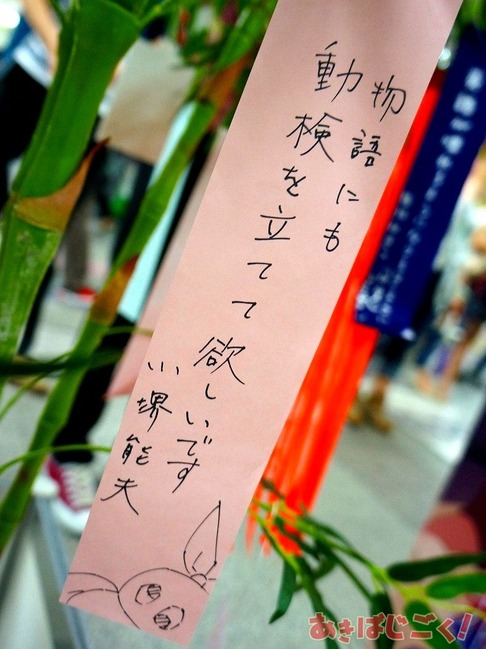 物語にも
動検を立てて欲しいです
小堺能夫
あきばじごく!